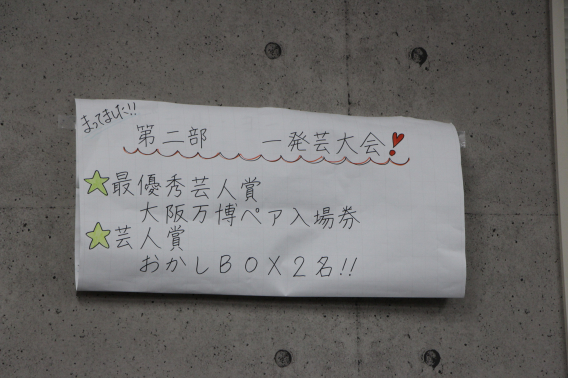 まってました!!
第二部 一発芸大会!
最優秀芸人賞
大阪万博ペア入場券
芸人賞
おかしBOX2名!!